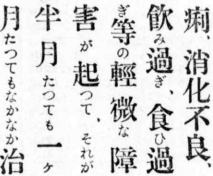 痢、消化不良、
飲み過ぎ、食ひ過
ぎ等の輕微な障
害が起つて、それが
半月たつても一ヶ
月たつてもなかなか治